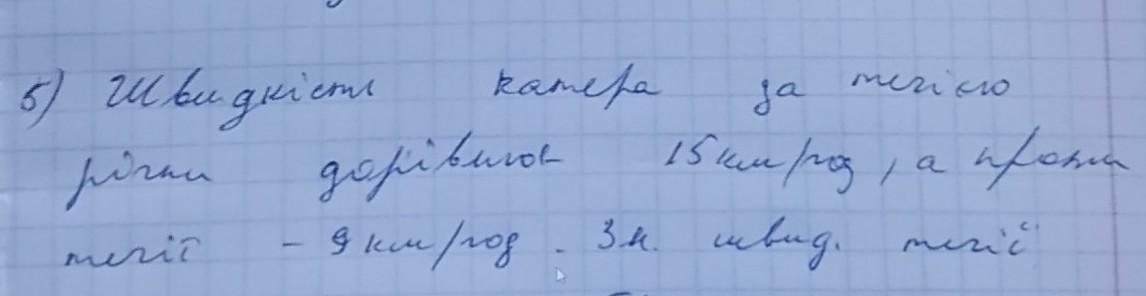 5) Швидкість катера за течією
річки дорівнює 15 км/год, а проти
течії - 9 км/год. Зн. швид. течії